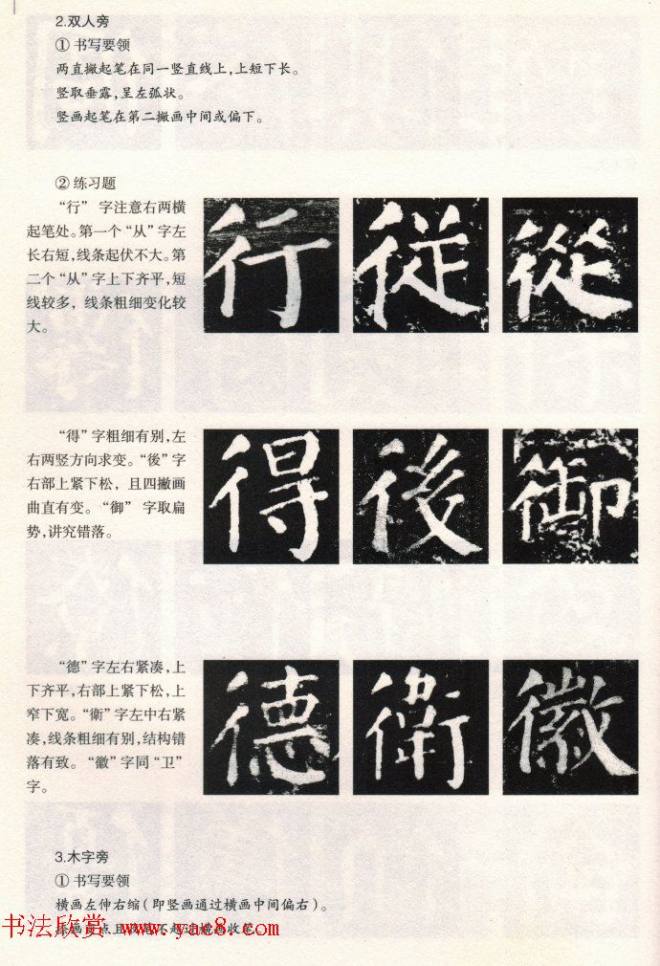 2.双人旁
①书写要领
两直撇起笔在同一竖直线上,上短下长。
竖取垂露,呈左弧状。
竖画起笔在第二撇画中间或偏下。
②练习题
“行”字注意右两横
起笔处。第一个“从”字左
长右短,线条起伏不大。第
二个“从”字上下齐平,短
线较多,线条粗细变化较
大。
行 従 從
“得”字粗细有别,左
右两竖方向求变。“後”字
右部上紧下松,且四撇画
曲直有变。“御”字取扁
势,讲究错落。
得 後 御
“德”字左右紧凑,上
下齐平,右部上紧下松,上
窄下宽。“衛”字左中右紧
凑,线条粗细有别,结构错
落有致。“徽”字同“卫”
字。
德 衛 徽
3.木字旁
①书写要领
横画左伸右缩(即竖画通过横画中间偏右)。
书法欣赏 www.ya8.com